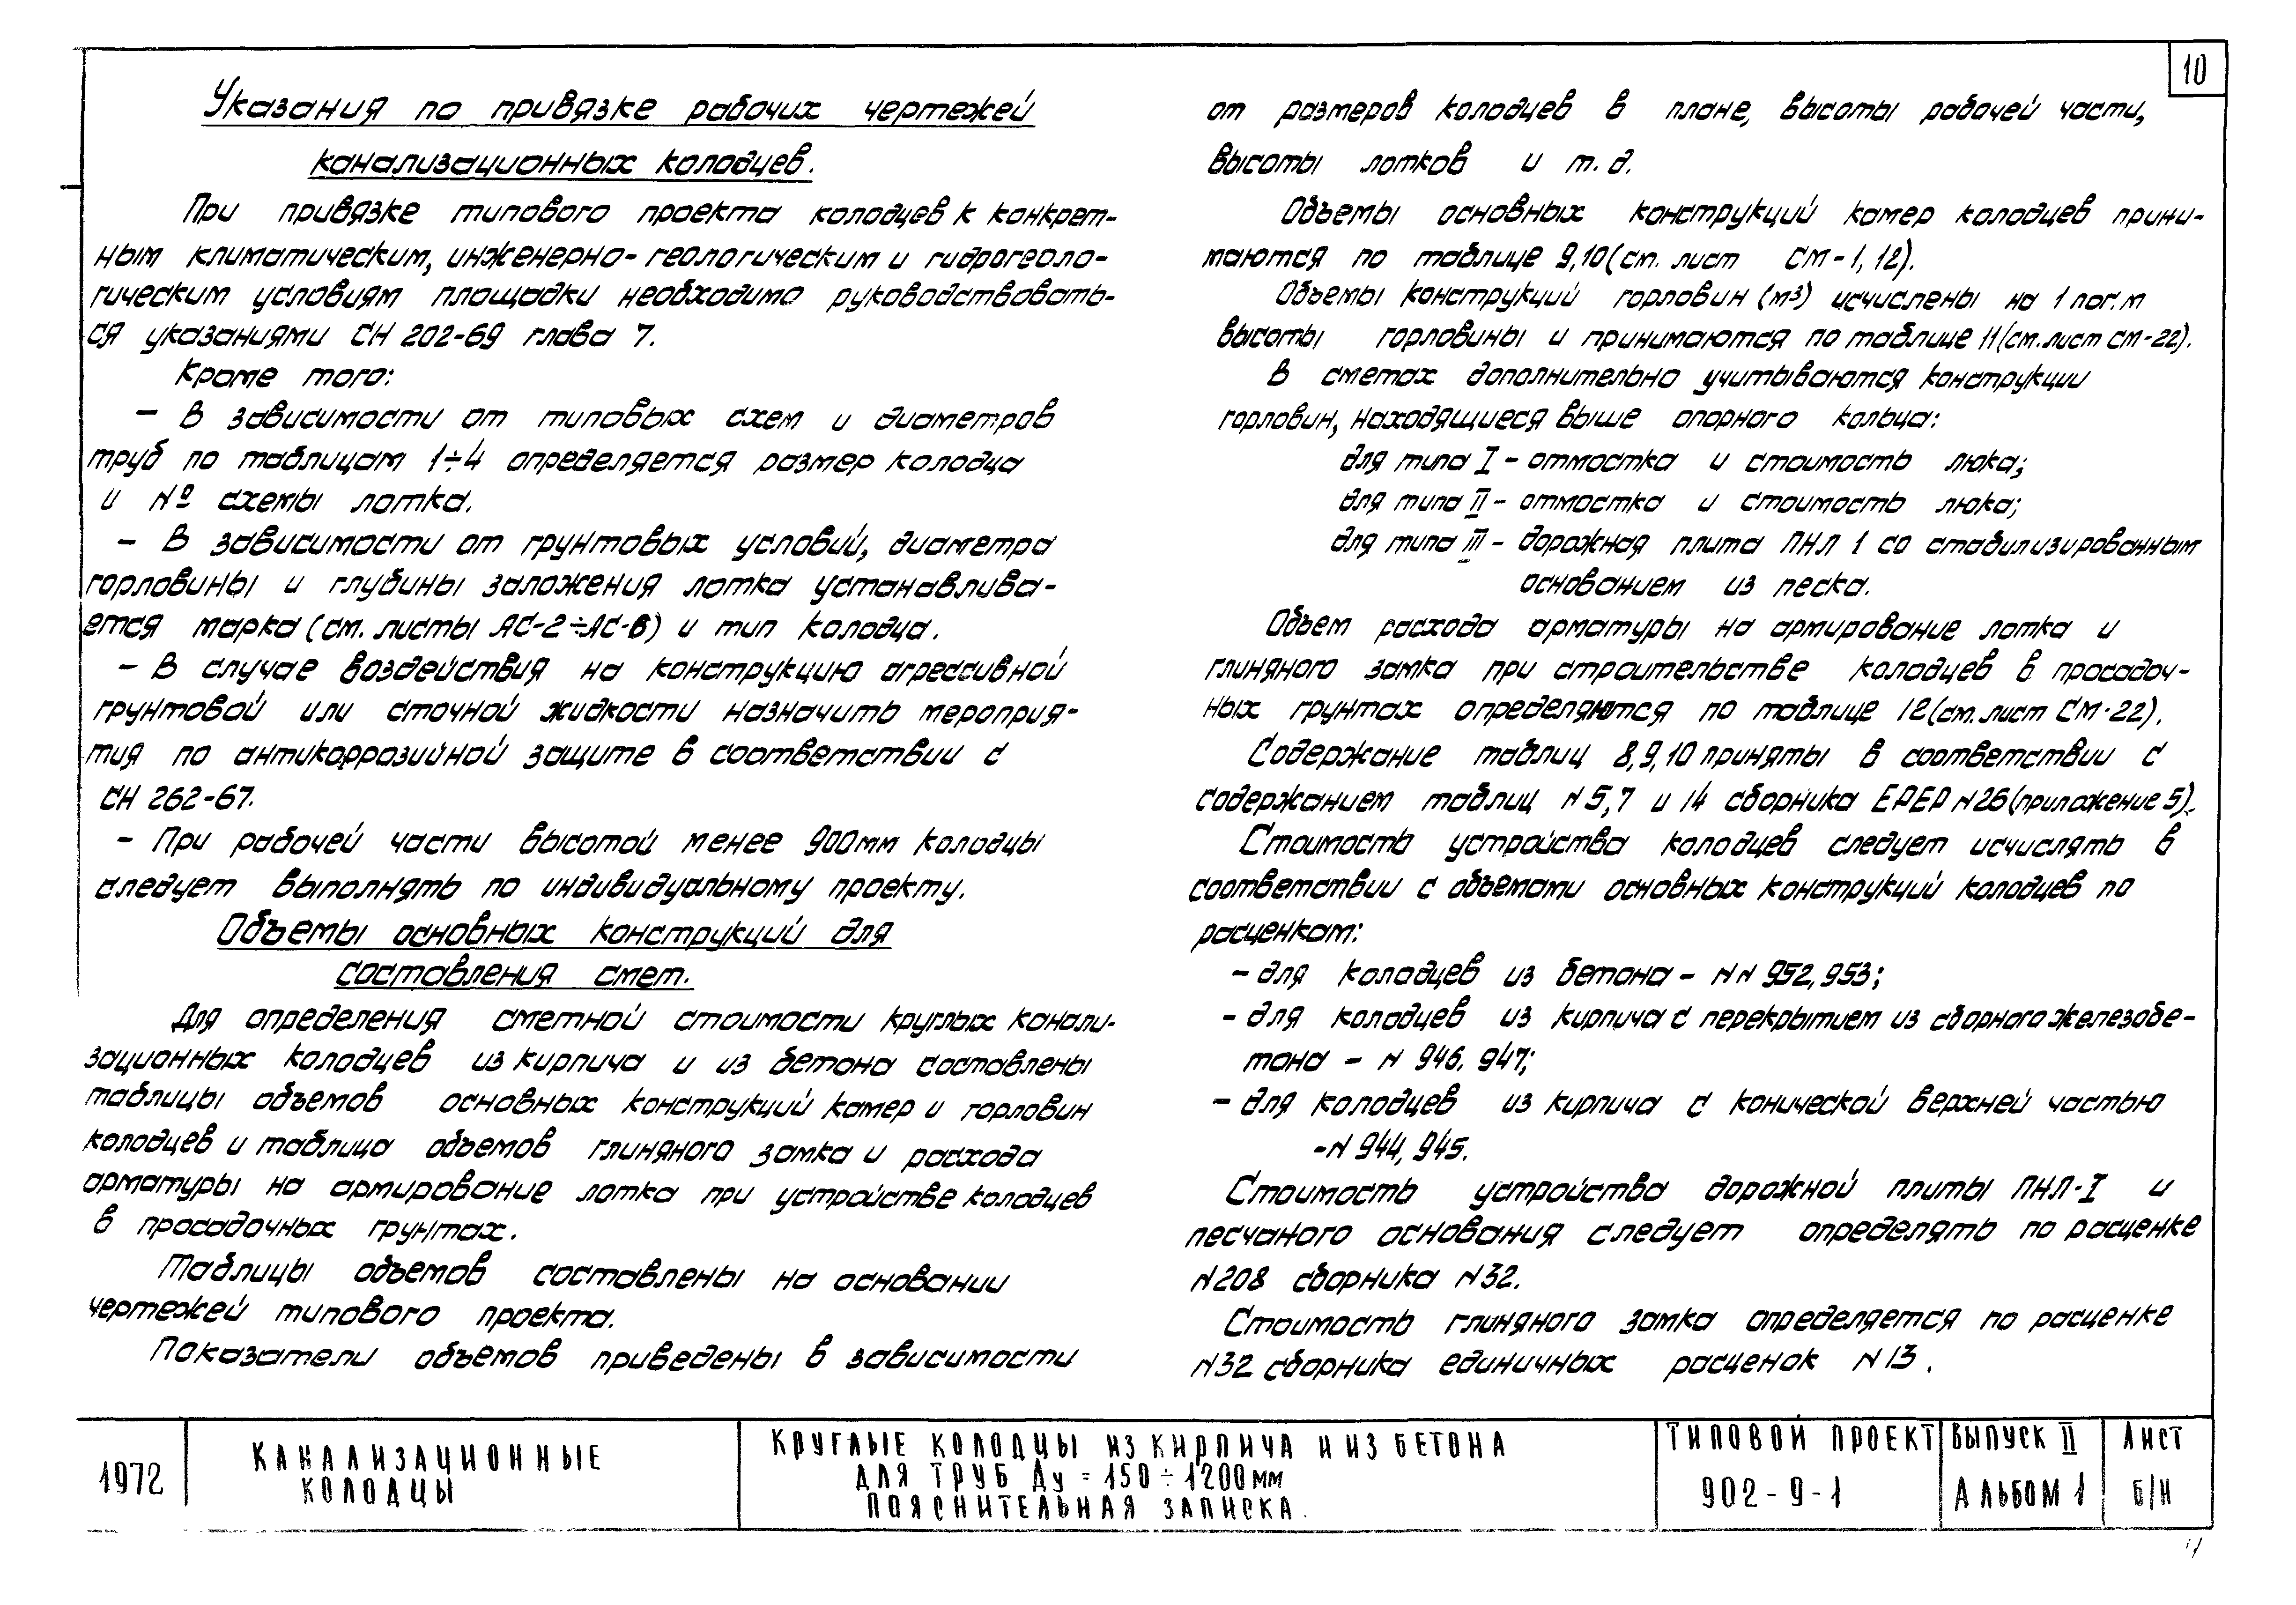 10
Указания по привязке рабочих чертежей
канализационных колодцев.
При привязке типового проекта колодцев к конкрет-
ным климатическим, инженерно-геологическим и гидрогеоло-
гическим условиям площадки необходимо руководствовать-
ся указаниями СН 202-69 глава 7.
Кроме того:
– В зависимости от типовых схем и диаметров
труб по таблицам 1÷4 определяется размер колодца
и № схемы лотка.
– В зависимости от грунтовых условий, диаметра
горловины и глубины заложения лотка устанавлива-
ется марка (см. листы АС-2÷АС-8) и тип колодца.
– В случае воздействия на конструкцию агрессивной
грунтовой или сточной жидкости назначить мероприя-
тия по антикоррозийной защите в соответствии с
СН 262-67.
– При рабочей части высотой менее 900мм колодцы
следует выполнять по индивидуальному проекту.
Объемы основных конструкций для
составления смет.
Для определения сметной стоимости круглых канали-
зационных колодцев из кирпича и из бетона составлены
таблицы объемов основных конструкций камер и горловин
колодцев и таблица объемов глиняного замка и расхода
арматуры на армирование лотка при устройстве колодцев
в просадочных грунтах.
Таблицы объемов составлены на основании
чертежей типового проекта.
Показатели объемов приведены в зависимости
от размеров колодцев в плане, высоты рабочей части,
высоты лотков и т. д.
Объемы основных конструкций камер колодцев прини-
маются по таблице 9,10 (см. лист СМ-1, 12).
Объемы конструкций горловин (м³) исчислены на 1 пог. м
высоты горловины и принимаются по таблице 11 (см. лист СМ-22).
В сметах дополнительно учитываются конструкции
горловин, находящиеся выше опорного кольца:
для типа I – отмостка и стоимость люка;
для типа II – отмостка и стоимость люка;
для типа III – дорожная плита ПНЛ 1 со стабилизированным
основанием из песка.
Объем расхода арматуры на армирование лотка и
глиняного замка при строительстве колодцев в просадоч-
ных грунтах определяются по таблице 12 (см. лист СМ-22).
Содержание таблиц 8,9,10 приняты в соответствии с
содержанием таблиц N 5,7 и 14 сборника ЕРЕР N 26 (приложение 5).
Стоимость устройства колодцев следует исчислять в
соответствии с объемами основных конструкций колодцев по
расценкам:
– для колодцев из бетона – NN 952, 953;
– для колодцев из кирпича с перекрытием из сборного железобе-
тона – N 946, 947;
– для колодцев из кирпича с конической верхней частью
– N 944, 945.
Стоимость устройства дорожной плиты ПНЛ-I и
песчаного основания следует определять по расценке
N208 сборника N32.
Стоимость глиняного замка определяется по расценке
N32 сборника единичных расценок N 13.
1972
КАНАЛИЗАЦИОННЫЕ
КОЛОДЦЫ
КРУГЛЫЕ КОЛОДЦЫ ИЗ КИРПИЧА И ИЗ БЕТОНА
ДЛЯ ТРУБ Ду = 150 ÷ 1200мм
ПОЯСНИТЕЛЬНАЯ ЗАПИСКА.
ТИПОВОЙ ПРОЕКТ
902-9-1
ВЫПУСК II
АЛЬБОМ 1
ЛИСТ
Б/Н